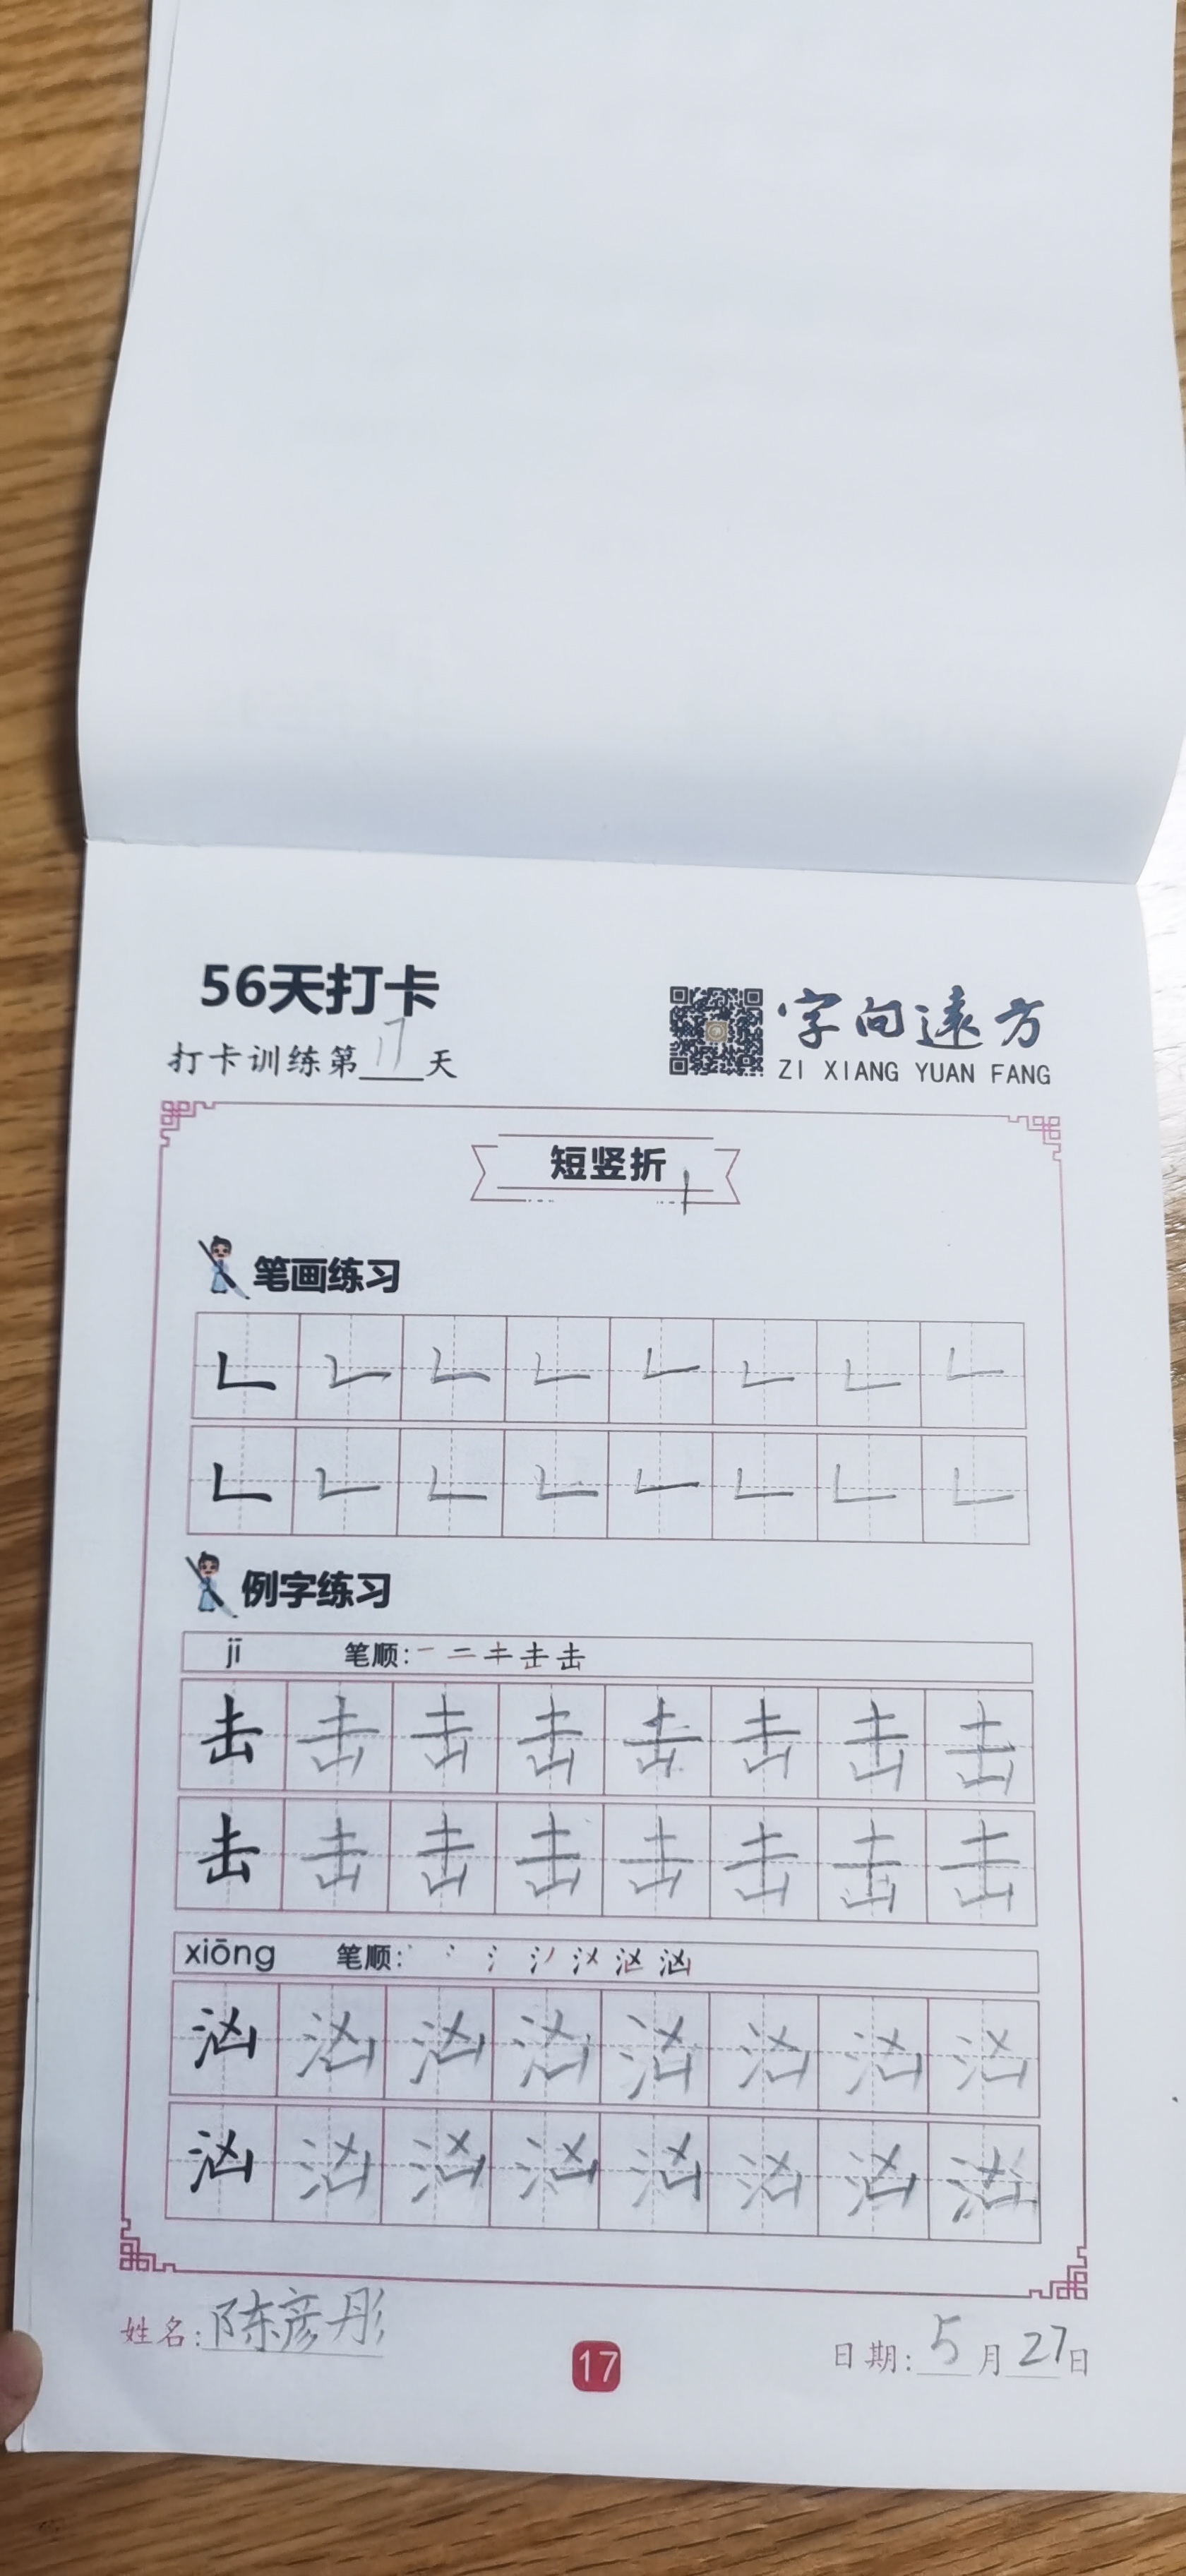 56天打卡
打卡训练第17天
字向远方
ZI XIANG YUAN FANG
短竖折
笔画练习
𠃊 𠃊 𠃊 𠃊 𠃊 𠃊 𠃊 𠃊
𠃊 𠃊 𠃊 𠃊 𠃊 𠃊 𠃊 𠃊
例字练习
jī 笔顺:一 二 キ 击 击
击 击 击 击 击 击 击 击
击 击 击 击 击 击 击 击
xiōng 笔顺:丶 冫 氵 汹
汹 汹 汹 汹 汹 汹 汹 汹
汹 汹 汹 汹 汹 汹 汹 汹
姓名:陈彦彤
17
日期:5月27日